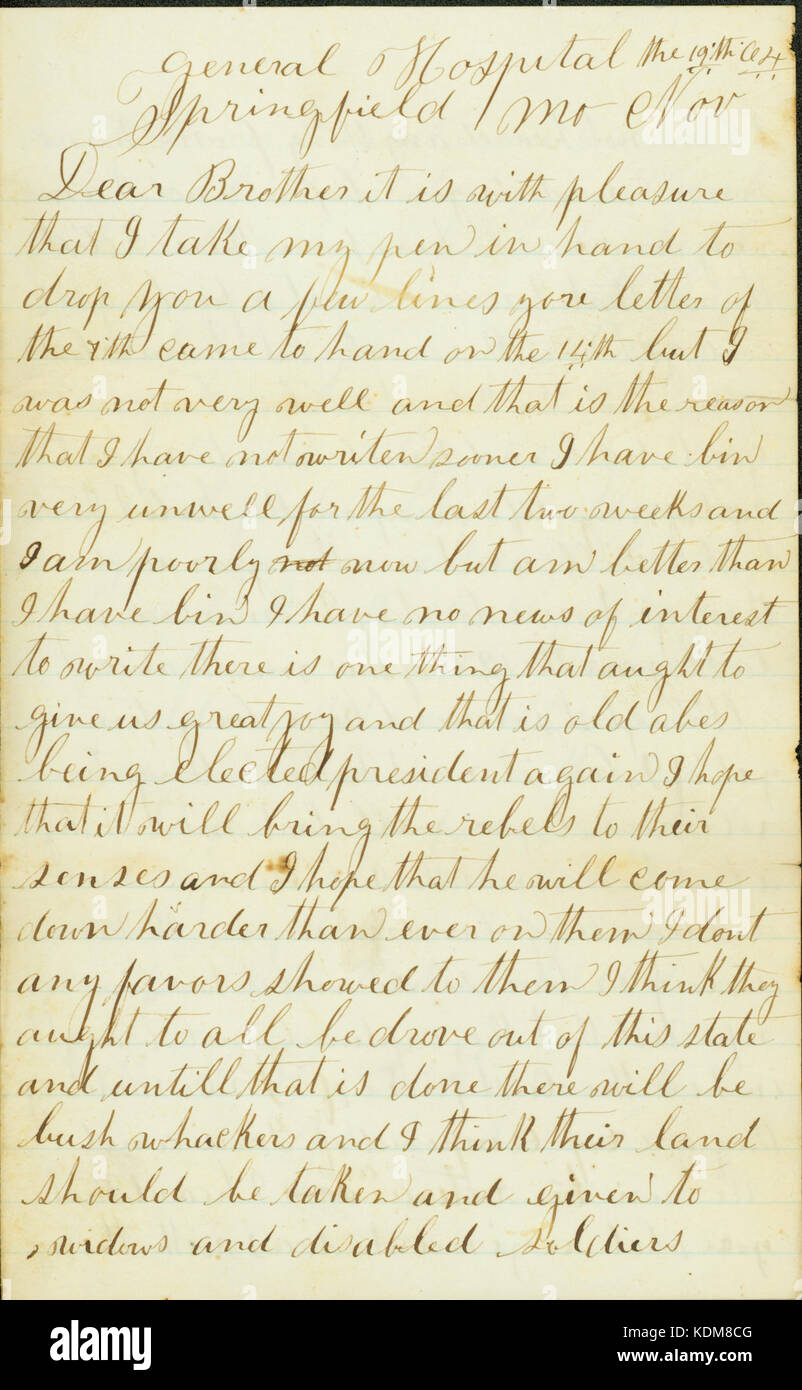 General Hospital the 19th 64
Springfield Mo Nov
Dear Brother it is with pleasure
that I take my pen in hand to
drop you a few lines yore letter of
the 7th came to hand on the 14th but I
was not very well and that is the reason
that I have not writen sooner I have bin
very unwell for the last two weeks and
I am poorly not now but am better than
I have bin I have no news of interest
to write there is one thing that aught to
give us great joy and that is old abes
being elected president again I hope
that it will bring the rebels to their
senses and I hope that he will come
down harder than ever on them I dont
any favors showed to them I think they
aught to all be drove out of this state
and untill that is done there will be
bush whackers and I think their land
should be taken and given to
widows and disabled soldiers
alamy
Image ID: KDM8CG
www.alamy.com